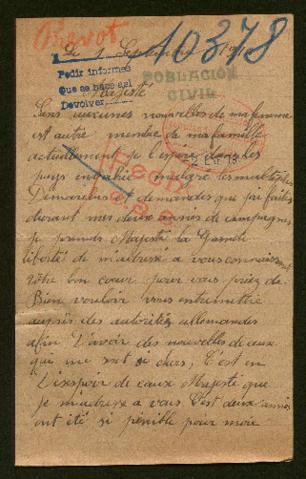 Prevot
10378
Le 1 Septembre
Pedir informes
Que se hace así
Devolver
POBLACIÓN
CIVIL
Majesté
Sans aucunes nouvelles de ma femme
est autre membre de ma famille
actuellement je l'espère dans les
pays envahis malgré les multiples
Démarches demandes que j'ai faites
durant mes deux années de campagnes
je prends Majesté la
liberté de m'adresse a vous connaissant
Votre bon cœur pour vous priez de
Bien vouloir vous entremettre
auprès des autorités allemandes
afin D'avoir des nouvelles de ceux
qui me sont si chers, C'est en
L'espoir de ceux Majesté que
je m'adresse a vous C'est deux années
ont été si pénible pour moi